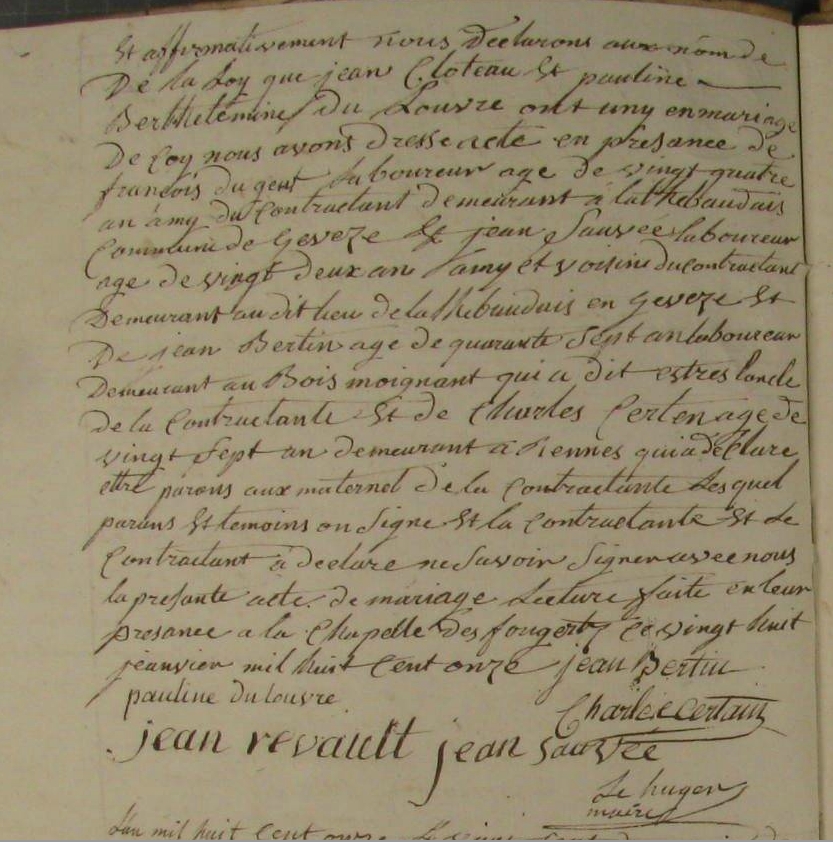 Et affirmativement nous Declarons aux nom de
De la Loy que jean Cloteau Et pauline
Berthelemine Du Louvre ont uny en mariage
De Coy nous avons dresse acte en presance de
francois du gent laboureur age de vingt quatre
an amy du Contractant demeurant à la thebaudais
Commune de Geveze Et jean Sauvée laboureur
age de vingt deux an l'amy et voisin du contractant
Demeurant au dit lieu de la thebaudais en Geveze Et
De jean Bertin age de quarante Sept an laboureur
Demeurant au Bois moignant qui a dit estres loncle
de la Contractante Et de Charles Certen age de
vingt Sept an demeurant a Rennes qui a declare
etre parans aux maternel de la Contractante Les quel
parans Et temoins on Signe Et la Contractante Et Le
Contractant à declare ne Savoir Signer avec nous
la presante acte de mariage Lecture faite en leur
presance a la Chapelle des fougertz Ce vingt huit
jeanvier mil huit Cent onze jean Bertin
pauline du louvre
Charle Certain
jean revault jean sauvée
Le huger
maire
L'an mil huit Cent onze